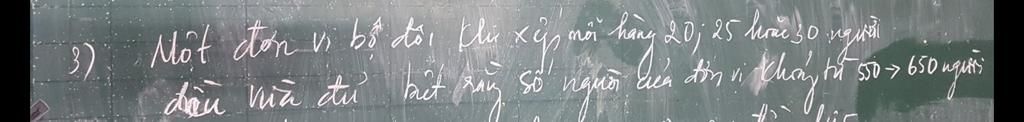 3) Một đơn vị bộ đội khi xếp mỗi hàng 20; 25 hoặc 30 người
đều vừa đủ biết rằng số người của đơn vị khoảng từ 550 → 650 người